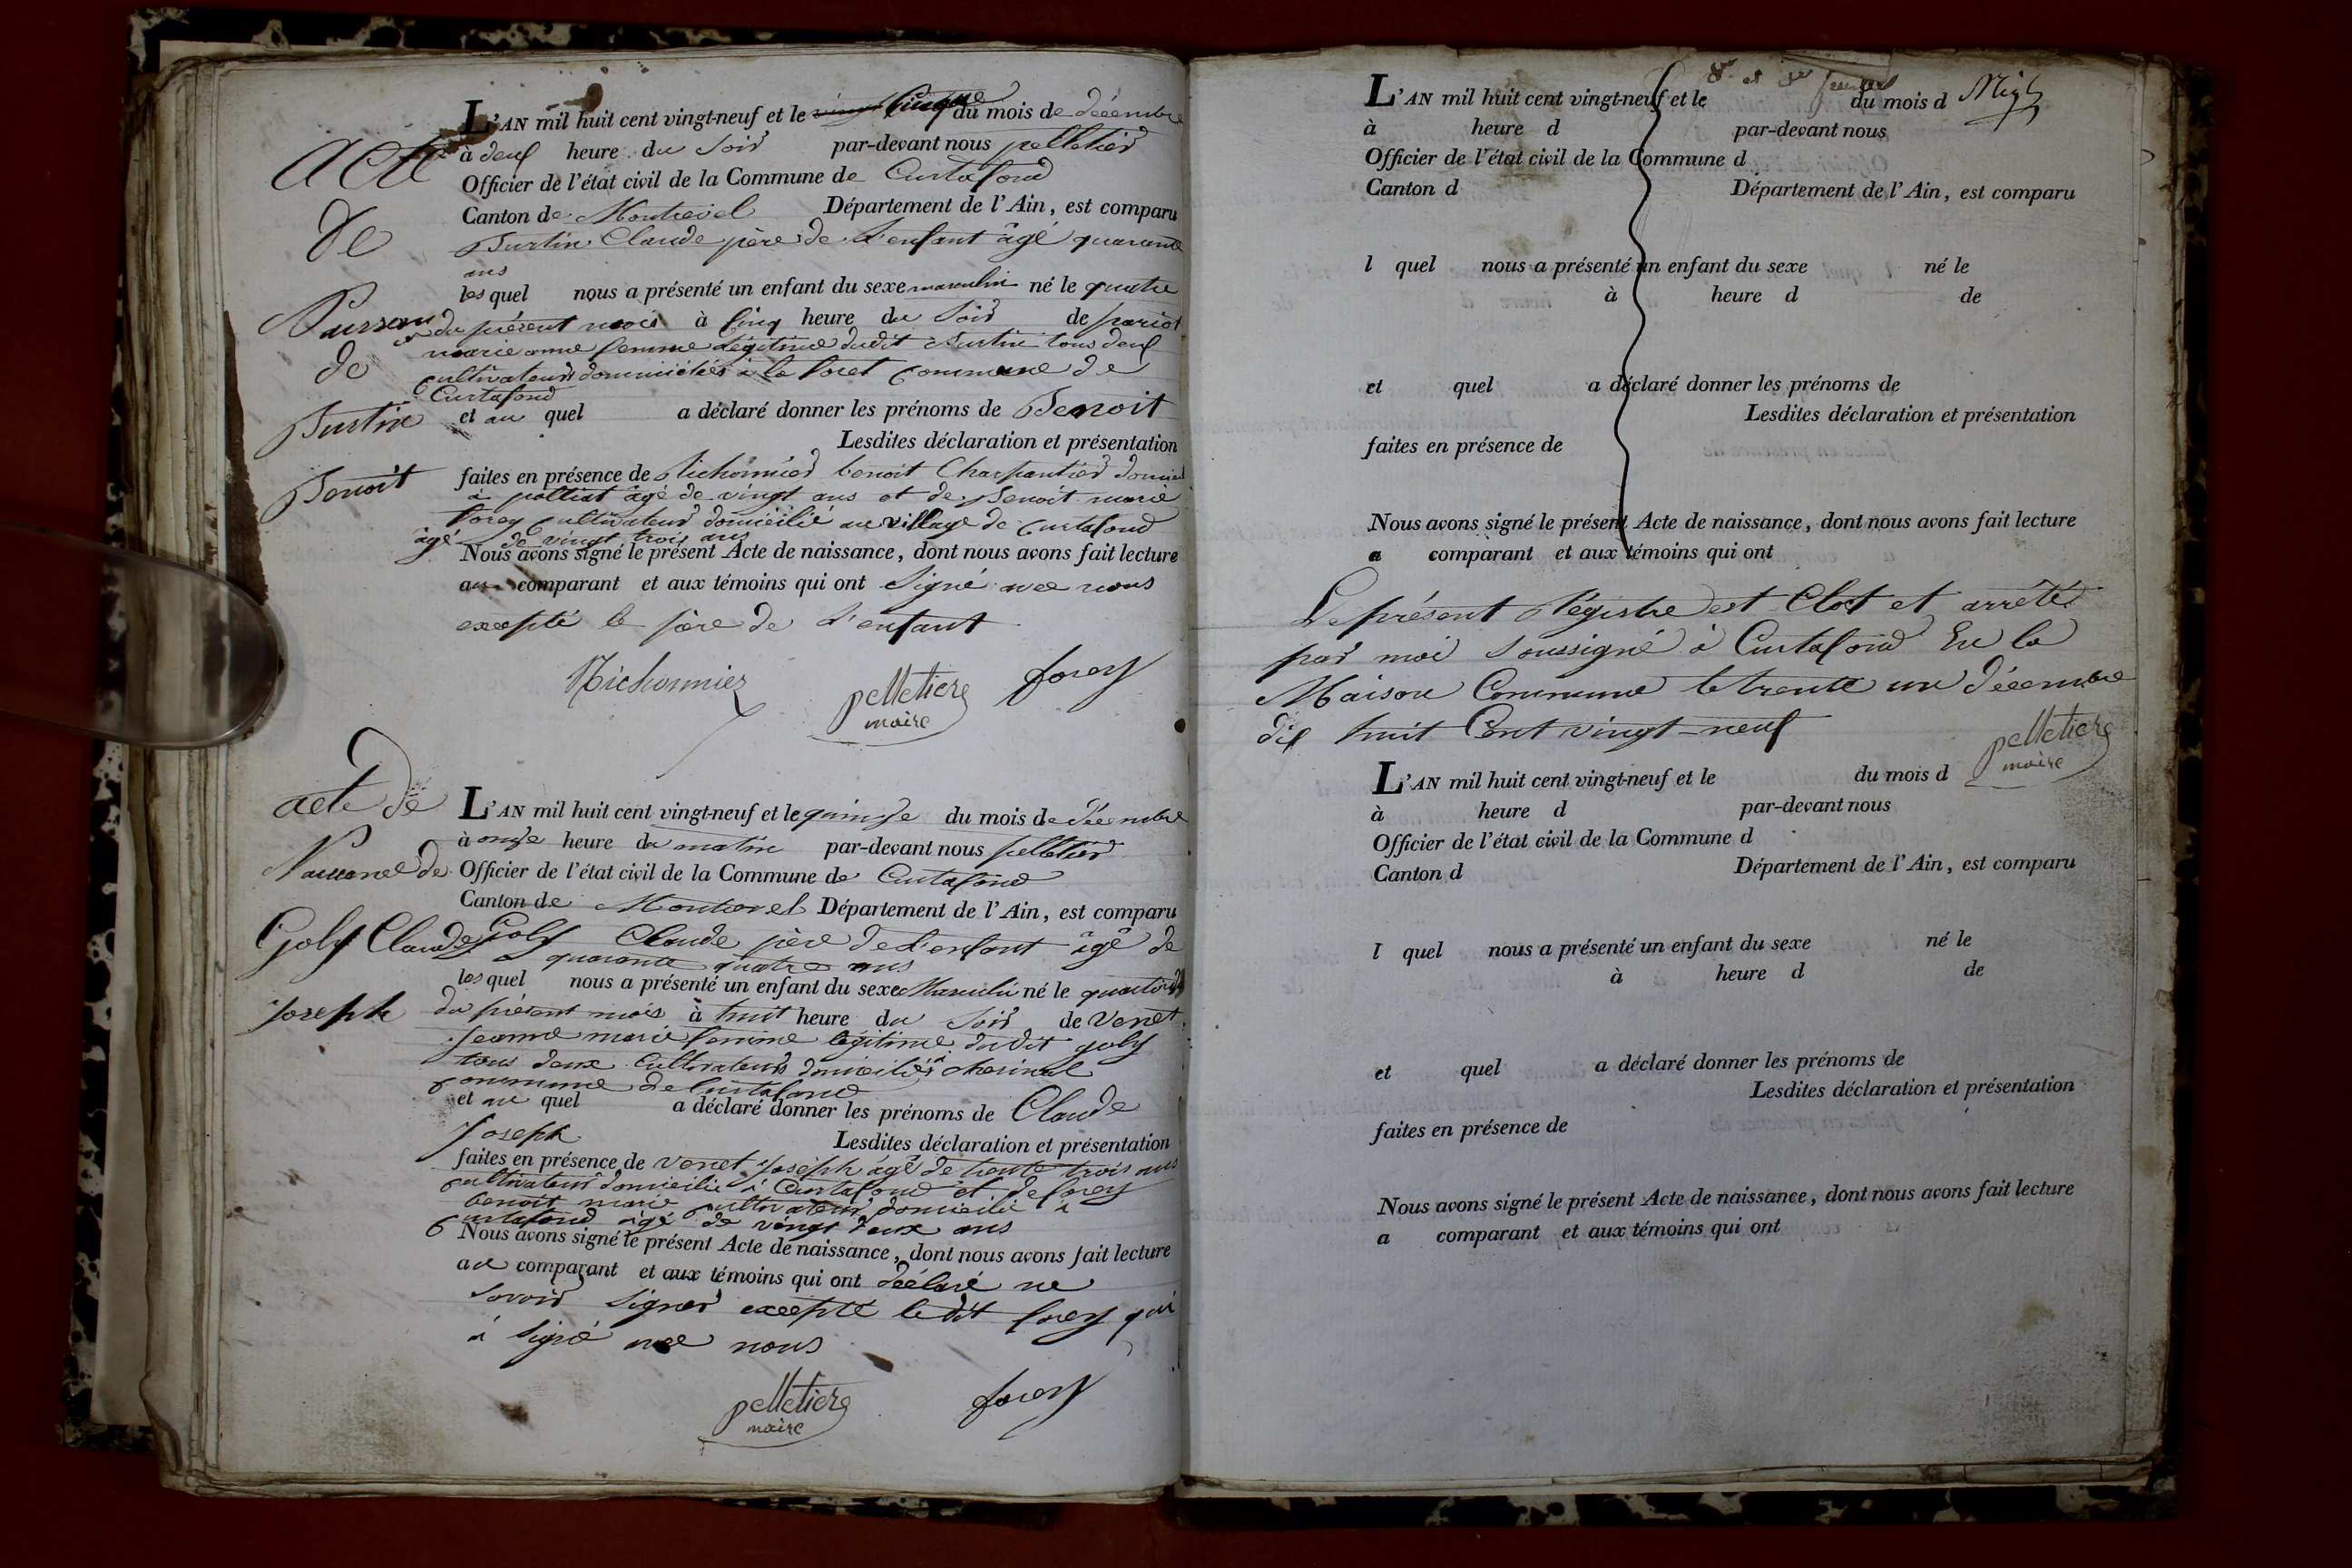 L'AN mil huit cent vingt-neuf et le cinq du mois de décembre
acte
à deux heure du soir par-devant nous pelletier
Officier de l'état civil de la Commune de Curtafond
Canton de Montrevel Département de l'Ain, est comparu
de
Burtin Claude père de L'enfant âgé quarante
ans
lesquel nous a présenté un enfant du sexe masculin né le quatre
du présent mois à cinq heure du Soir de pariot
marie anne femme Légitime dudit Burtin tous deux
de
cultivateurs domiciliés à la foret commune de
Curtafond
Burtin
et au quel a déclaré donner les prénoms de Benoit
Lesdites déclaration et présentation
Benoit
faites en présence de Michonnier benoit Charpantier
à polliat âgé de vingt ans et de Benoit marie
forey cultivateur domicilié au village de curtafond
âgé de vingt trois ans
Nous avons signé le présent Acte de naissance, dont nous avons fait lecture
au comparant et aux témoins qui ont Signé avec nous
excepté le père de L'enfant
Michonnier pelletier forey
maire
acte de
L'AN mil huit cent vingt-neuf et le quinze du mois de décembre
à onze heure du matin par-devant nous pelletier
Naissance de
Officier de l'état civil de la Commune de Curtafond
Canton de Montrevel Département de l'Ain, est comparu
Goly Claude
Goly Claude père de L'enfant âgé de
quarante quatre ans
lesquel nous a présenté un enfant du sexe Masculin né le quatorze
joseph
du présent mois à huit heure du Soir de Venet
jeanne marie femme légitime dudit goly
tous deux Cultivateurs domiciliés à
commune de Curtafond
et au quel a déclaré donner les prénoms de Claude
joseph Lesdites déclaration et présentation
faites en présence de venet joseph âgé de trente trois ans
cultivateur domicilié à Curtafond et de forey
benoit marie cultivateur domicilié à
curtafond âgé de vingt deux ans
Nous avons signé le présent Acte de naissance, dont nous avons fait lecture
au comparant et aux témoins qui ont déclaré ne
Savoir Signer excepté le dit forey qui
à Signé avec nous
pelletier forey
maire
L'AN mil huit cent vingt-neuf et le du mois d
à heure d par-devant nous
Officier de l'état civil de la Commune d
Canton d Département de l'Ain, est comparu
l quel nous a présenté un enfant du sexe né le
à heure d de
et quel a déclaré donner les prénoms de
Lesdites déclaration et présentation
faites en présence de
Nous avons signé le présent Acte de naissance, dont nous avons fait lecture
a comparant et aux témoins qui ont
Le présent Régistre est Clot et arrêté
par moi Soussigné à Curtafond En la
Maison Commune le trente un décembre
dix huit Cent vingt-neuf
pelletier
maire
L'AN mil huit cent vingt-neuf et le du mois d
à heure d par-devant nous
Officier de l'état civil de la Commune d
Canton d Département de l'Ain, est comparu
l quel nous a présenté un enfant du sexe né le
à heure d de
et quel a déclaré donner les prénoms de
Lesdites déclaration et présentation
faites en présence de
Nous avons signé le présent Acte de naissance, dont nous avons fait lecture
a comparant et aux témoins qui ont